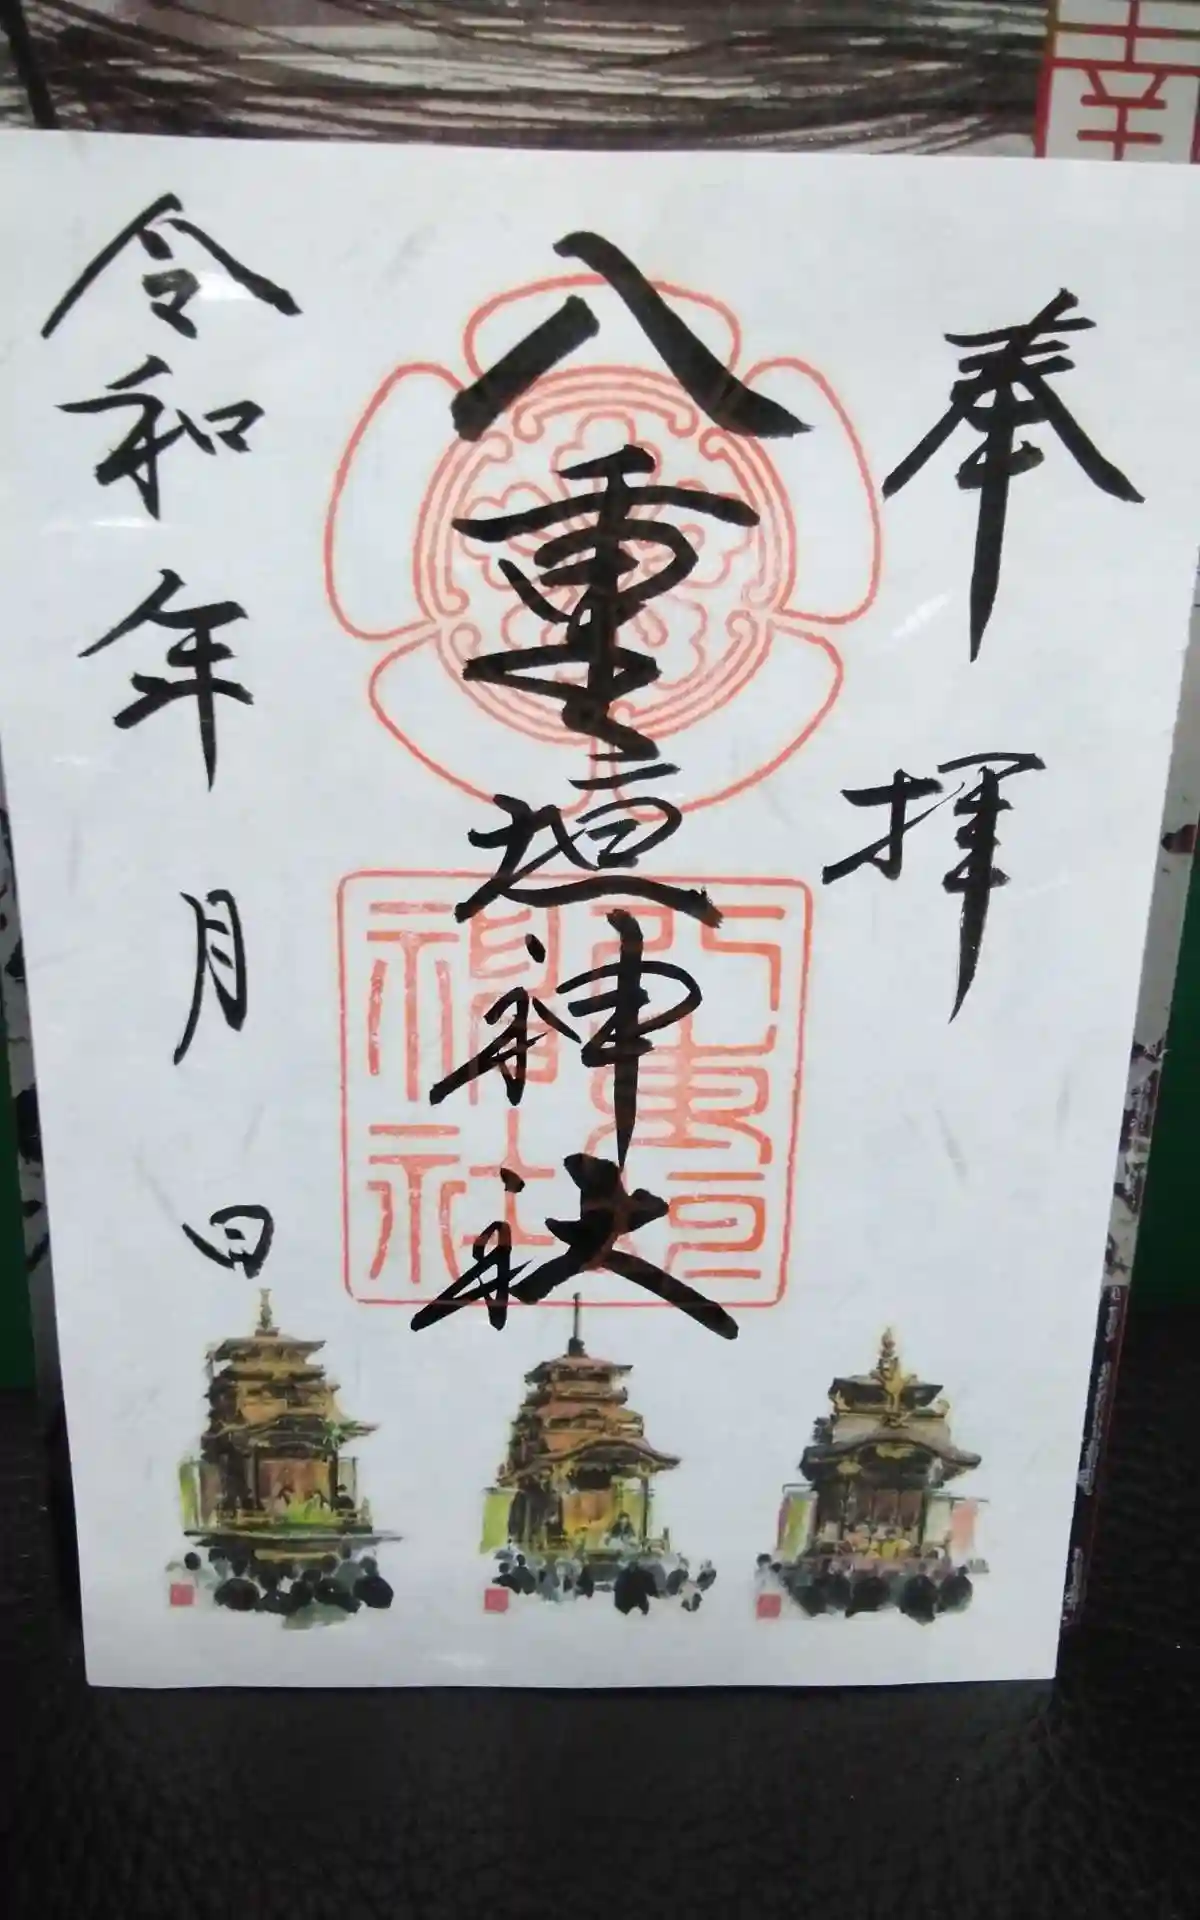 奉拝
八重垣神社
八重垣神社
令和 年 月 日
幸